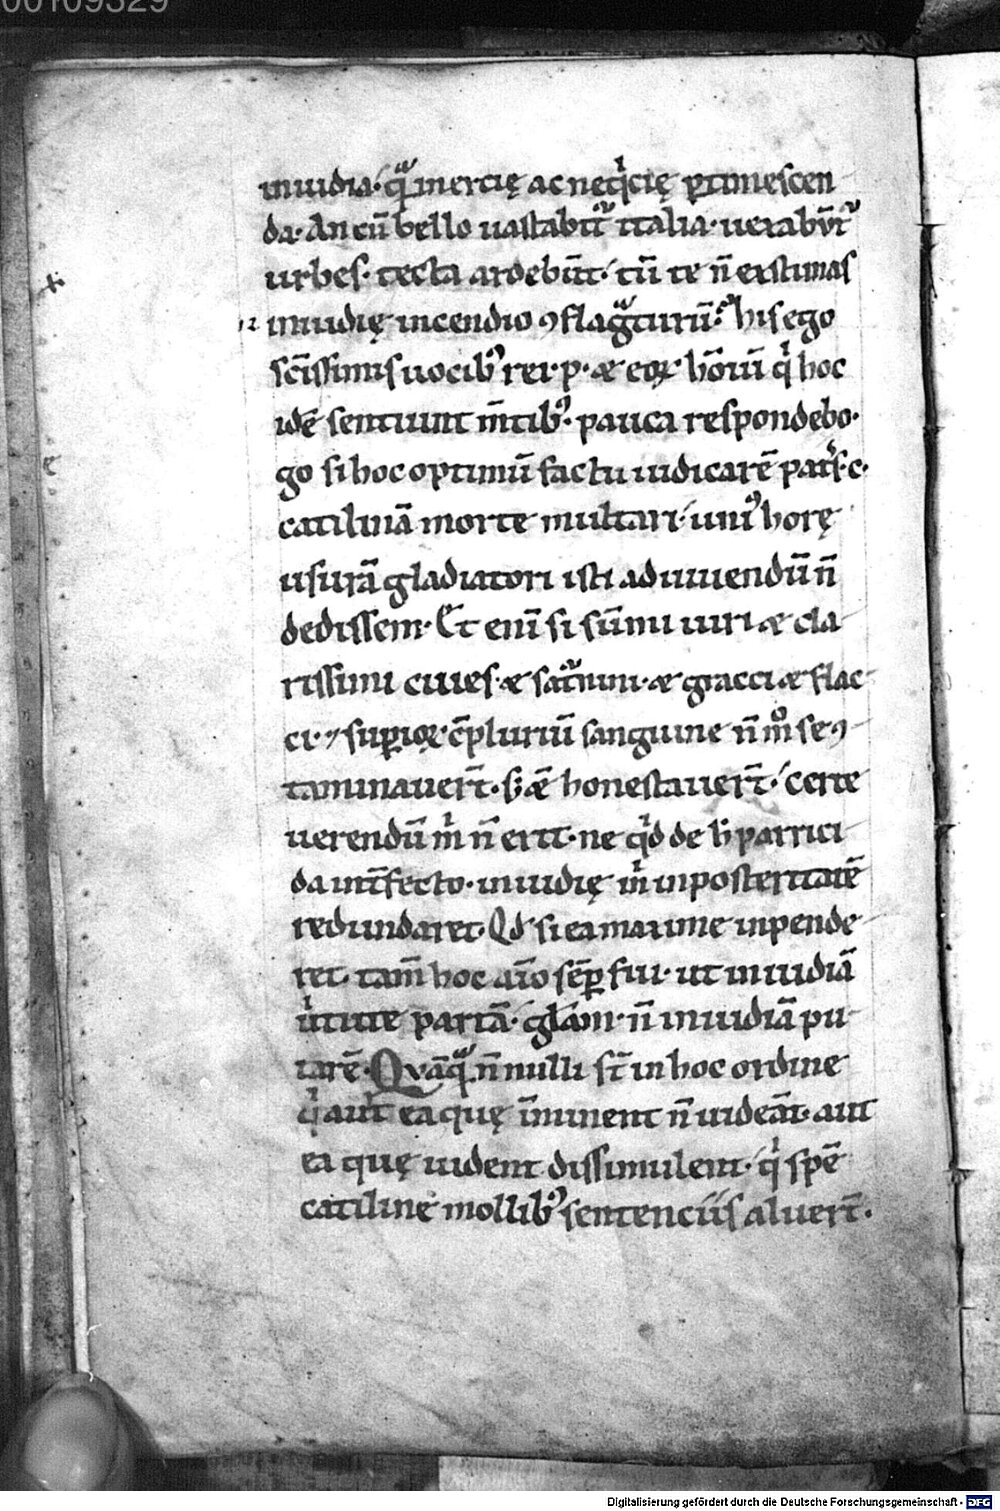 00109329
inuidia· q̃m inercię ac neqͥcię ꝑtimescen
da· An cū bello uastabit᷑ italia· uexabūt᷑
urbes· tecta ardebūt· tū te ñ existimas
inuidię incendio ꝯflagͣturū· his ego
sc̄issimis uocibꝰ rei· p· & eoꝝ hōiū qͥ hoc
idē sentiunt m̄tibꝰ· pauca respondebo·
go si hoc optimū factu iudicarē patrͤs· c·
catilinā morte multari· uniꝰ horę
usurā gladiatori isti ad uiuendū ñ
dedissem· Et eni̅ si sūmi uiri & cla
rissimi ciues· & sat᷑nini· & gracci & flac
ci· ⁊ supioꝝ cōplurīu sanguine ñ mͦ se ꝯ
taminauerт̄· s; & honestauert̄· certe
uerendū mͥ ñ erit· ne qͥd de h̄ parrici
da int̄fecto· inuidię mͥ in posteritatē
redundaret· Qd̄ si ea maxime inpende
ret· tam̄ hoc aīo sēꝑ fui· ut inuidiā
uͥtute partā· glām· ñ inuidiā pu
tarē· Quāqͣ ñ nulli st̄ in hoc ordine
qͥ aut ea quę īminent ñ uideāt· aut
ea quę uident dissimulent· qͥ spē
catiline mollibꝰ sentenciis aluert̄·
Digitalisierung gefördert durch die Deutsche Forschungsgemeinschaft - DFG